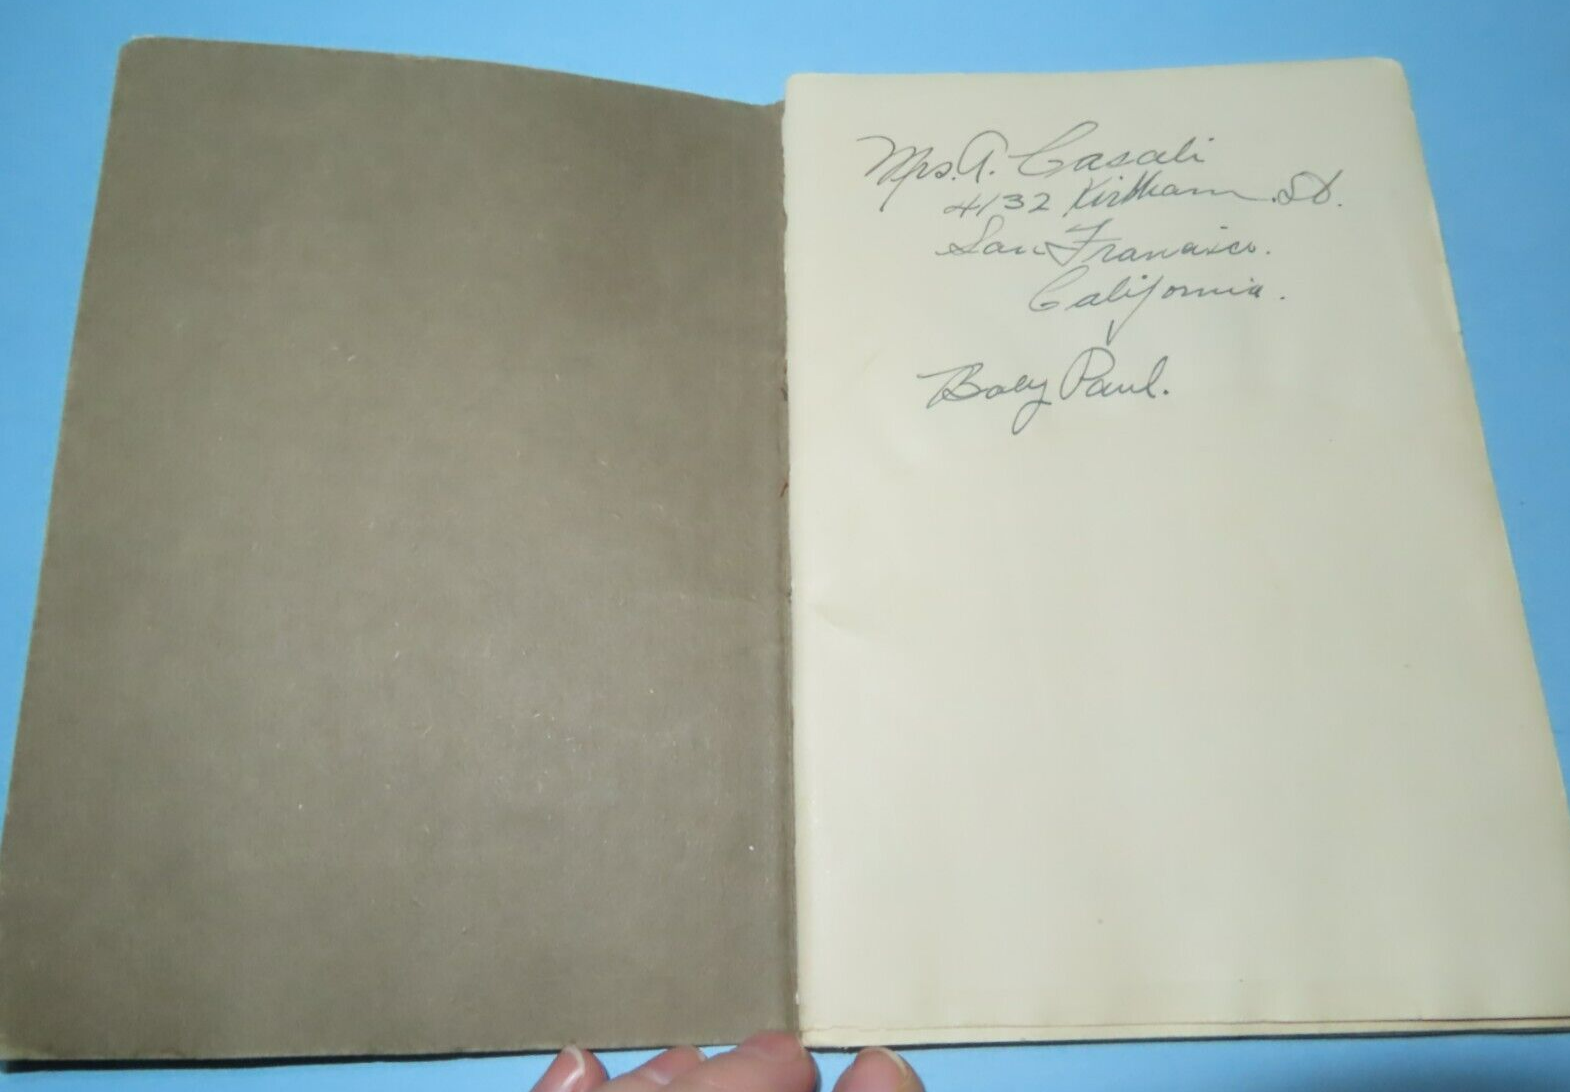 Mrs. A. Casali
4132 Kirkham St.
San Francisco.
California.
Baby Paul.